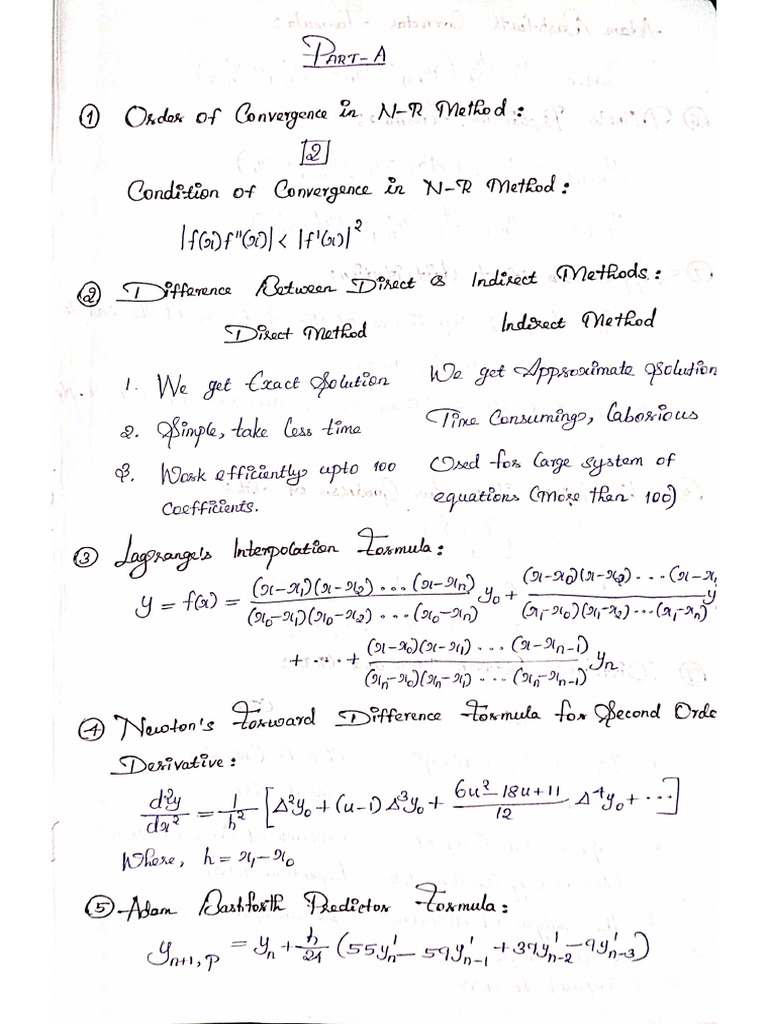 PART-A
① Order of Convergence in N-R Method:
2
Condition of Convergence in N-R Method:
|f(x)f''(x)| < |f'(x)|²
② Difference Between Direct & Indirect Methods:
Direct Method Indirect Method
1. We get Exact Solution We get Approximate Solution
2. Simple, take less time Time Consuming, Laborious
3. Work efficiently upto 100 Used for large system of
coefficients. equations (More than 100)
③ Lagrange's Interpolation Formula:
y = f(x) = (x-x₁)(x-x₂)...(x-xₙ) / (x₀-x₁)(x₀-x₂)...(x₀-xₙ) y₀ + (x-x₀)(x-x₂)...(x-x / (x₁-x₀)(x₁-x₂)...(x₁-xₙ) y
+ ... + (x-x₀)(x-x₁)...(x-xₙ₋₁) / (xₙ-x₀)(xₙ-x₁)...(xₙ-xₙ₋₁) yₙ
④ Newton's Forward Difference Formula for Second Orde
Derivative:
d²y/dx² = 1/h² [Δ²y₀ + (u-1)Δ³y₀ + (6u²-18u+11)/12 Δ⁴y₀ + ...]
Where, h = x₁-x₀
⑤ Adam Bashforth Predictor Formula:
yₙ₊₁,p = yₙ + h/24 (55y'ₙ - 59y'ₙ₋₁ + 37y'ₙ₋₂ - 9y'ₙ₋₃)